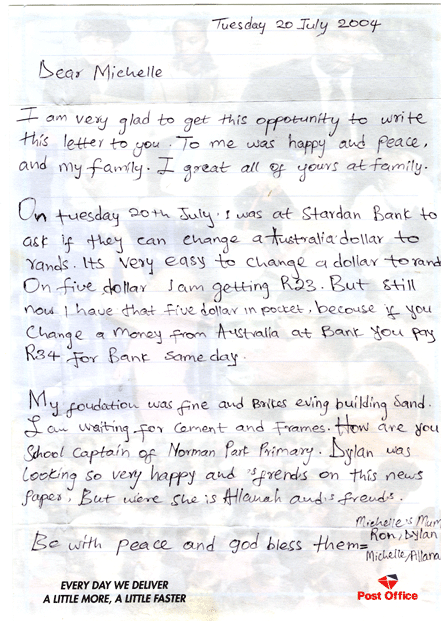 Tuesday 20 July 2004
Dear Michelle
I am very glad to get this oppotunity to write
this letter to you. To me was happy and peace,
and my family. I great all of yours at family.
On tuesday 20th July. I was at Stardan Bank to
ask if they can change a Australia dollar to
rands. Its very easy to change a dollar to rand
On five dollar I am getting R23. But still
now I have that five dollar in pocket, becouse if you
change a money from Australia at Bank you pay
R34 for Bank same day.
My foudation was fine and Brikes eving building Sand.
I am waiting for Cement and Frames. How are you
School Captain of Norman Part Primary. Dylan was
looking so very happy and 's frends on this news
paper. But were she is Allanah and 's freuds.
Be with peace and god bless them=
Michelle 's Mum
Ron, Dylan
Michelle, Allana
EVERY DAY WE DELIVER
A LITTLE MORE, A LITTLE FASTER
Post Office